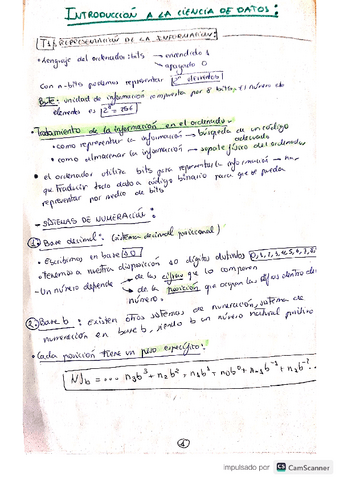 INTRODUCCIÓN A LA CIENCIA DE DATOS:
T1: REPRESENTACIÓN DE LA INFORMACIÓN:
• Lenguaje del ordenador: bits → encendido 1
→ apagado 0
Con n-bits podemos representar 2ⁿ elementos
Byte: unidad de información compuesta por 8 bits, el número de
elementos es 2⁸ = 256
• Tratamiento de la información en el ordenador:
• como representar la información → búsqueda de un código adecuado
• como almacenar la información → soporte físico del ordenador
• el ordenador utiliza bits para representar la información → hay
que traducir todo dato a código binario para que se pueda
representar por medio de bits
- SISTEMAS DE NUMERACIÓN:
1. Base decimal: (sistema decimal posicional)
• Escribimos en base 10
• Tenemos a nuestra disposición 10 dígitos distintos 0, 1, 2, 3, 4, 5, 6, 7, 8,
- Un número depende → de las cifras que lo componen
→ de la posición que ocupan las cifras dentro del
número.
2. Base b: Existen otros sistemas de numeración, sistema de
numeración en base b, siendo b un número natural positivo
• Cada posición tiene un peso específico:
N)b = ... n₃b³ + n₂b² + n₁b¹ + n₀b⁰ + n₋₁b⁻¹ + n₋₂b⁻² ...
1
impulsado por CS CamScanner